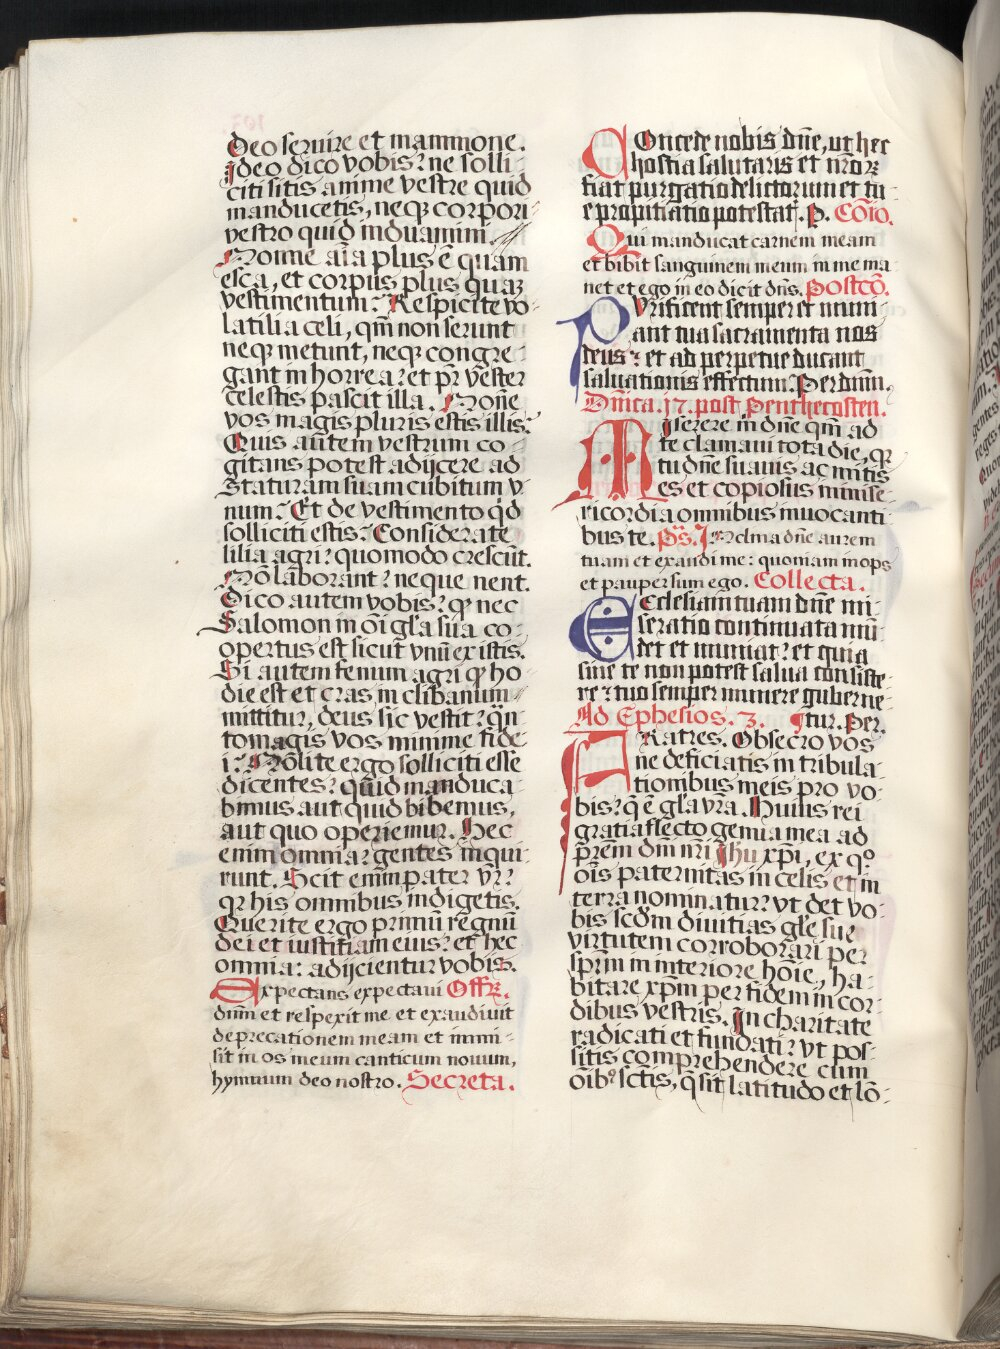 Deo seruire et mammone.
Ideo dico vobis? ne solli-
citi sitis anime vestre quid
manducetis, neqꝫ corpori-
vestro quid induamini.
Nonne aīa plus ē quam
esca, et corpus plus quaꝫ
vestimentum? Respicite vo-
latilia celi, qm̄ non serunt
neqꝫ metunt, neqꝫ congre-
gant in horrea: et pr̄ vester
celestis pascit illa. Nōne
vos magis pluris estis illis?
Quis autem vestrum co-
gitans potest adijcere ad
staturam suam cubitum v-
num? Et de vestimento qd̄
solliciti estis? Considerate
lilia agri? quomodo crescūt.
Nō laborant? neque nent.
Dico autem vobis? qꝫ nec
Salomon in oī gl̄a sua co-
opertus est sicut vnū ex istis.
Si autem fenum agri qꝫ ho-
die est et cras in clibanum
mittitur, deus sic vestit? qn̄-
to magis vos minime fide-
i? Nolite ergo solliciti esse
dicentes? quid manduca-
bimus aut quid bibemus,
aut quo operiemur. Hec
enim omnia? gentes inqui-
runt. Scit enim pater vr̄?
qꝛ his omnibus indigetis.
Querite ergo primū regnū
dei et iustitiam eius? et hec
omnia: adijcientur vobis.
Expectans expectaui Offꝝ.
dnm et respexit me et exaudiuit
deprecationem meam et immi-
sit in os meum canticum nouum,
hymnum deo nostro. Secreta.
COncede nobis dn̄e, ut hec
hostia salutaris et nr̄oꝝ
fiat purgatio delictorum et tu-
e propitiatio potestat̄. P. Cōio.
Qui manducat carnem meam
et bibit sanguinem meum in me ma-
net et ego in eo dicit dn̄s. Postcō.
PUrificent semper et muni-
ant tua sacramenta nos
deus: et ad perpetue ducant
saluationis effectum. Per dnm̄.
Dn̄ica. 17. post Penthecosten.
MIserere m̄ dn̄e qm̄ ad
te clamaui tota die, qꝛ
tu dn̄e suauis ac mitis
es et copiosus in mise-
ricordia omnibus inuocanti-
bus te. Ps̄. Inclina dn̄e aurem
tuam et exaudi me: quoniam inops
et pauper sum ego. Collecta.
ECclesiam tuam dn̄e mi-
seratio continuata mū-
det et muniat? et quia
sine te non potest salua consiste-
re? tuo semper munere guberne-
Ad Ephesios. 3. tur. Per.
FRatres. Obsecro vos
ne deficiatis in tribula-
tionibus meis pro vo-
bis? q̄ ē gl̄a vr̄a. Huius rei
gratia flecto genua mea ad
pr̄em dn̄i nr̄i ihu xp̄i, ex qº
oīs paternitas in celis et in
terra nominatur? vt det vo-
bis scd̄m diuitias gl̄e sue
virtutem corroborari per
spm̄ in interiore hoīe, ha-
bitare xp̄m per fidem in cor-
dibus vestris. In charitate
radicati et fundati? vt pos-
sitis comprehendere cum
oībꝰ sctis, q̄ sit latitudo et lō-